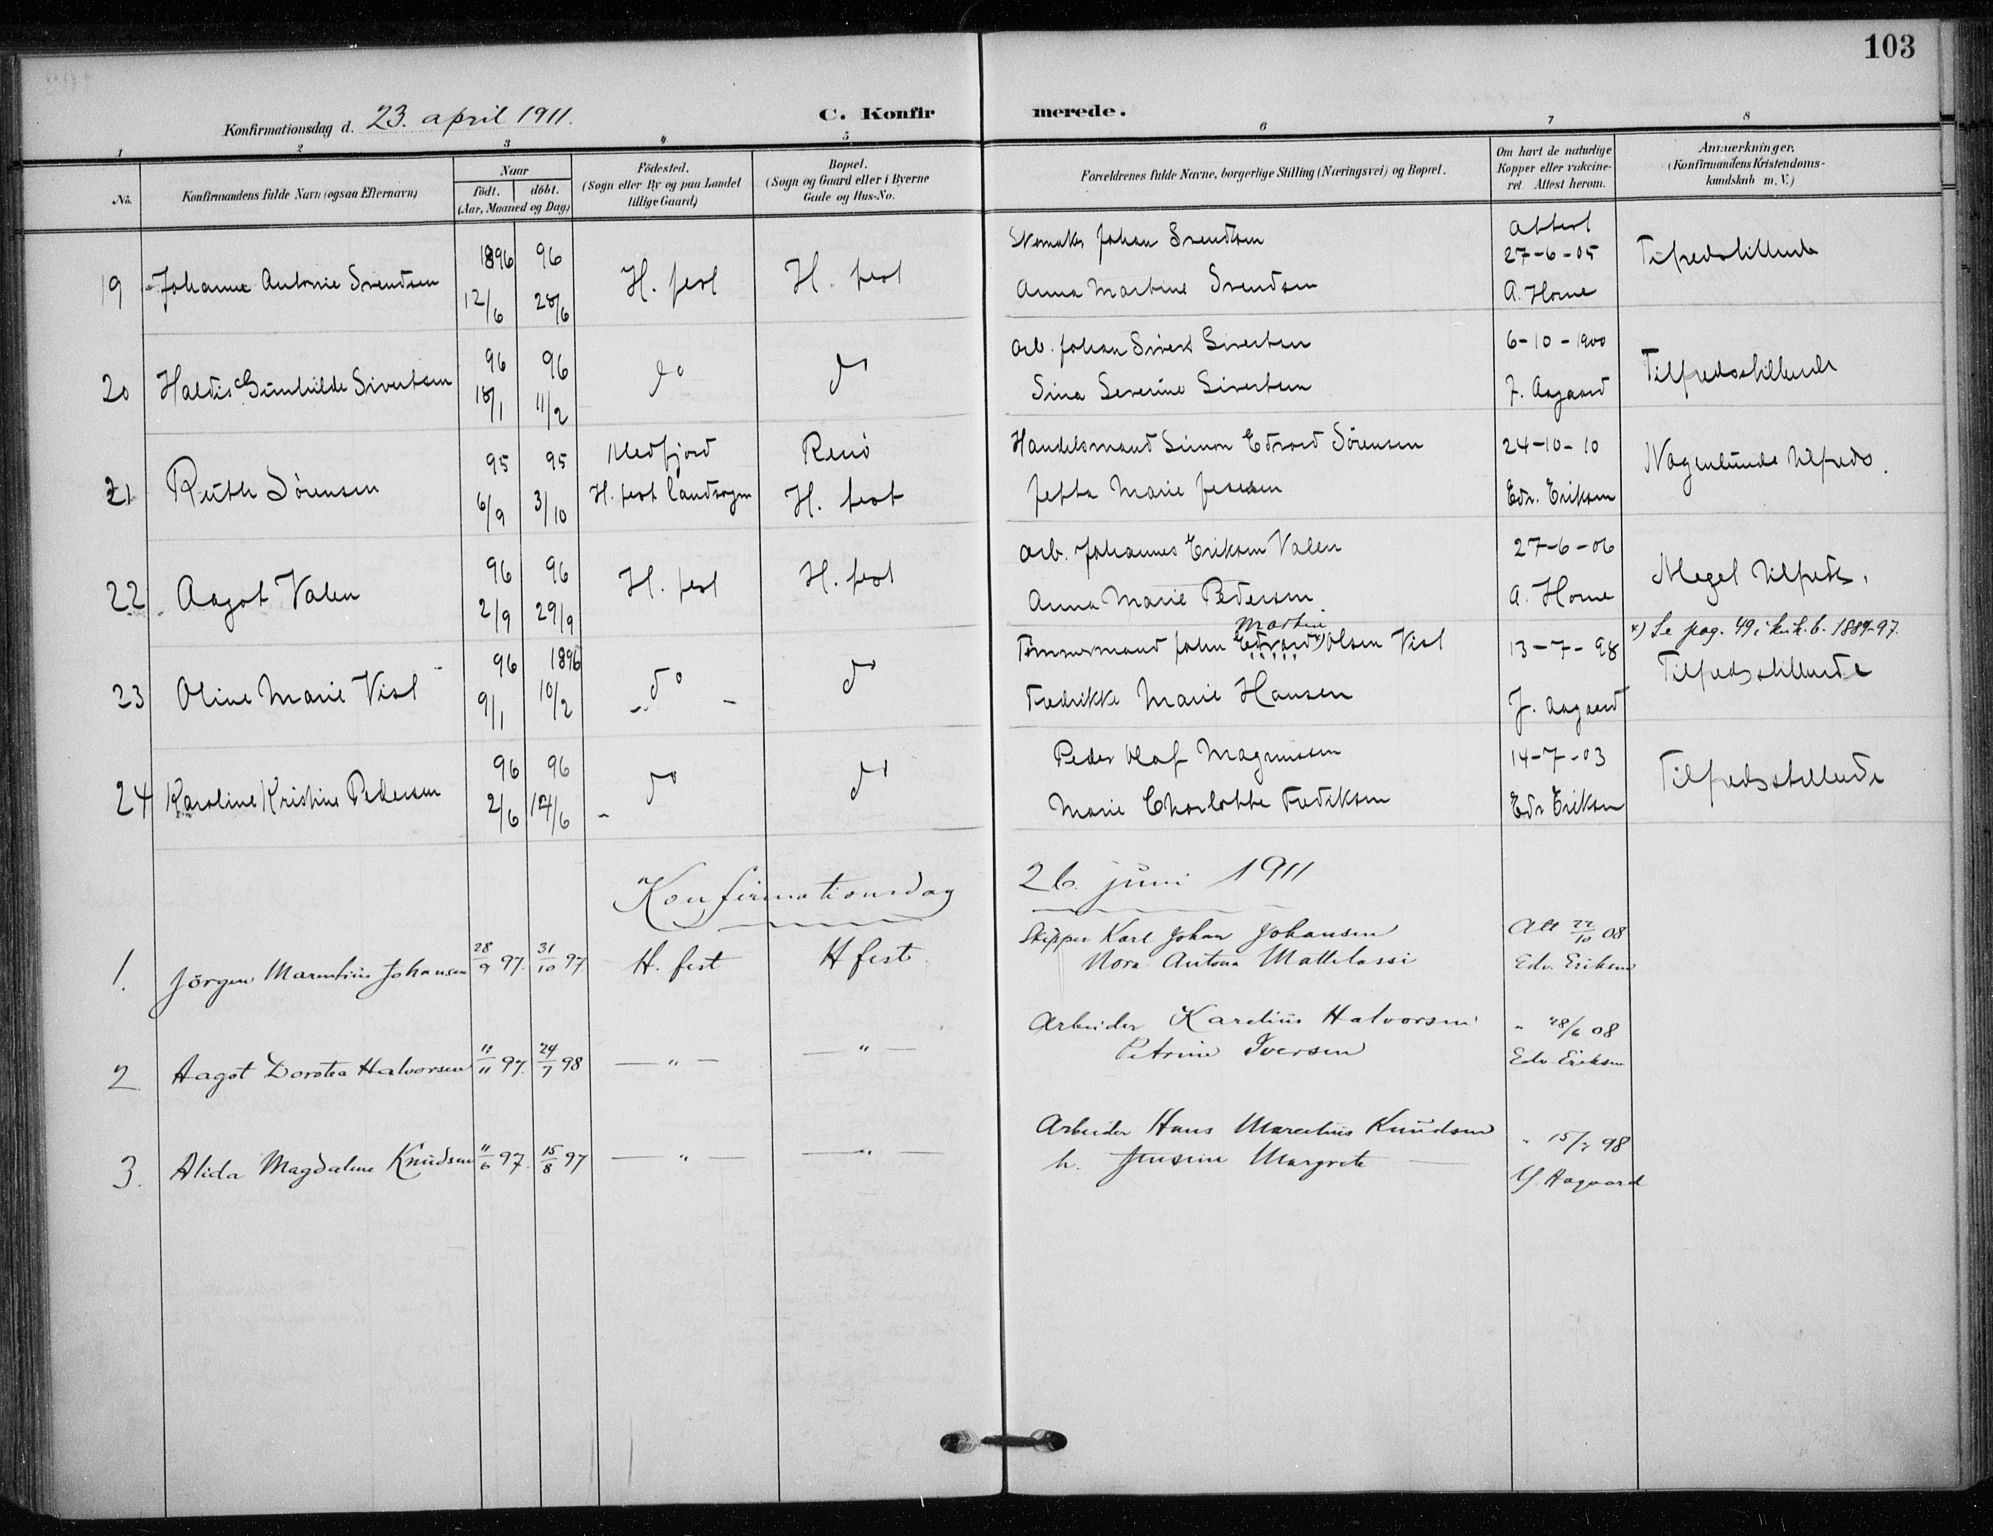 103
Konfirmationsdag d. 23. april 1911.
C. Konfirmerede.
1 2 3 4 5 6 7 8
No.
Konfirmandens fulde Navn (ogsaa Efternavn)
Naar
födt. döbt.
(Aar, Maaned og Dag)
Födested.
(Sogn eller By og paa Landet
tillige Gaard)
Bopæl.
(Sogn og Gaard eller i Byerne
Gade og Hus-No.
Forældrenes fulde Navne, borgerlige Stilling (Næringsvei) og Bopæl.
Om havt de naturlige
Kopper eller vakcine-
ret Attest herom.
Anmærkninger.
(Konfirmandens Kristendoms-
kundskab m. V.)
19 Johanne Antonie Svendsen 1896 12/6 96 28/6 H. fest H. fest
Skomaker Johan Svendsen
Anna Martine Svendsen
Attest
27-6-05
A. Horne
Tilfredsstillende
20 Haldis Gunhilde Sivertsen 96 18/1 96 11/2 do do
Arb. Johan Sivert Sivertsen
Sina Severine Sivertsen
6-10-1900
J. Aagaard
Tilfredsstillende
21 Ruth Sörensen 95 6/9 95 3/10
Klefjord
H. fest landsogn
Renö
H. fest
Handelsmand Simon Edvard Sörensen
Jetta Marie Jensen
24-10-10
Edv. Eriksen
Nogenlunde tilfreds.
22 Aagot Valen 96 2/9 96 29/9 H. fest H. fest
Arb. Johannes Eriksen Valen
Anna Marie Pedersen
27-6-06
A. Horne
Meget tilfreds.
23 Oline Marie Vist 96 9/1 1896 10/2 do do
Martin
Tømmermand John Edvard x) Olsen Vist
Fredrikke Marie Hansen
13-7-98
J. Aagaard
x) Se pag. 49 i k.b. 1889-97.
Tilfredsstillende
24 Karoline Kristine Pedersen 96 2/6 96 14/6 do do
Peder Olaf Magnussen
Marie Charlotte Fredriksen
14-7-03
Edv Eriksen
Tilfredsstillende
Konfirmationsdag 26. juni 1911
1. Jörgen Marentius Johansen 28/9 97. 31/10 97 H. fest H fest.
Skipper Karl Johan Johansen
Nora Antona Mattilassi
Att 22/10 08
Edv. Eriksen
2 Aagot Dorotea Halvorsen 11/11 97. 24/7 98 — " — — " —
Arbeider Karelius Halvorsen
Petrine Iversen
" 28/6 08
Edv Eriksen
3. Alida Magdalene Knudsen 11/6 97. 15/8 97 — " — — " —
Arbeider Hans Marelius Knudsen
h. Jensine Margrete —
" 15/7 98
J. Aagaard